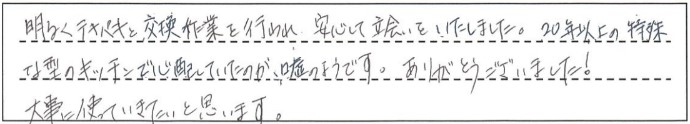 明るくテキパキと交換作業を行われ 安心して立会いをいたしました。20年以上の特殊
な型のキッチンで心配していたのが、嘘のようです。ありがとうございました!
大事に使っていきたいと思います。